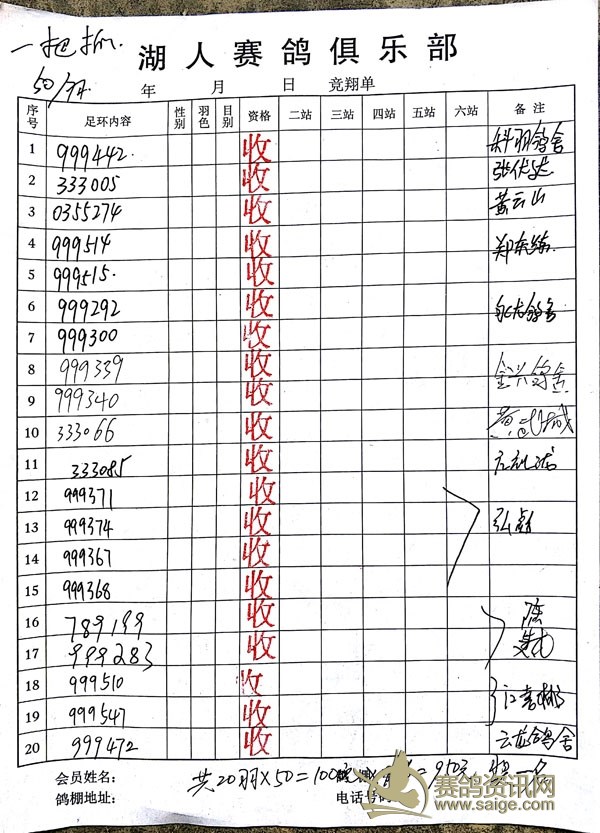 一把抓.
湖人赛鸽俱乐部
50/羽. 年 月 日 竞翔单
序号 足环内容 性别 羽色 目别 资格 二站 三站 四站 五站 六站 备注
1 999442. 收 科羽鸽舍
2 333005 收
3 0355274 收 黄云山
4 999514 收
5 999515. 收
6 999292 收
7 999300 收
8 999339 收 金兴鸽舍
9 999340 收
10 333066 收
11 333085 收
12 999371 收
13 999374 收
14 999367 收
15 999368 收
16 789199 收
17 999283 收
18 999510 收
19 999547 收
20 999472 收 云龙鸽舍
会员姓名: 共20羽×50=100
鸽棚地址: 电话号码
赛鸽资讯网
www.saige.com